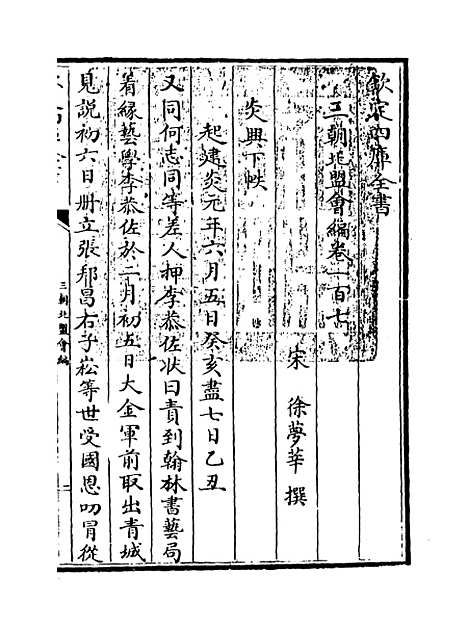 欽定四庫全書
三朝北盟會編卷一百七
宋 徐夢莘 撰
炎興下帙
起建炎元年六月五日癸亥盡七日乙丑
又同何志同等差人押李恭佐狀曰責到翰林書藝局
看縁藝學李恭佐於二月初五日大金軍前取出青城
見說初六日册立張邦昌右子崧等世受國恩叨冒從
三朝北盟會編